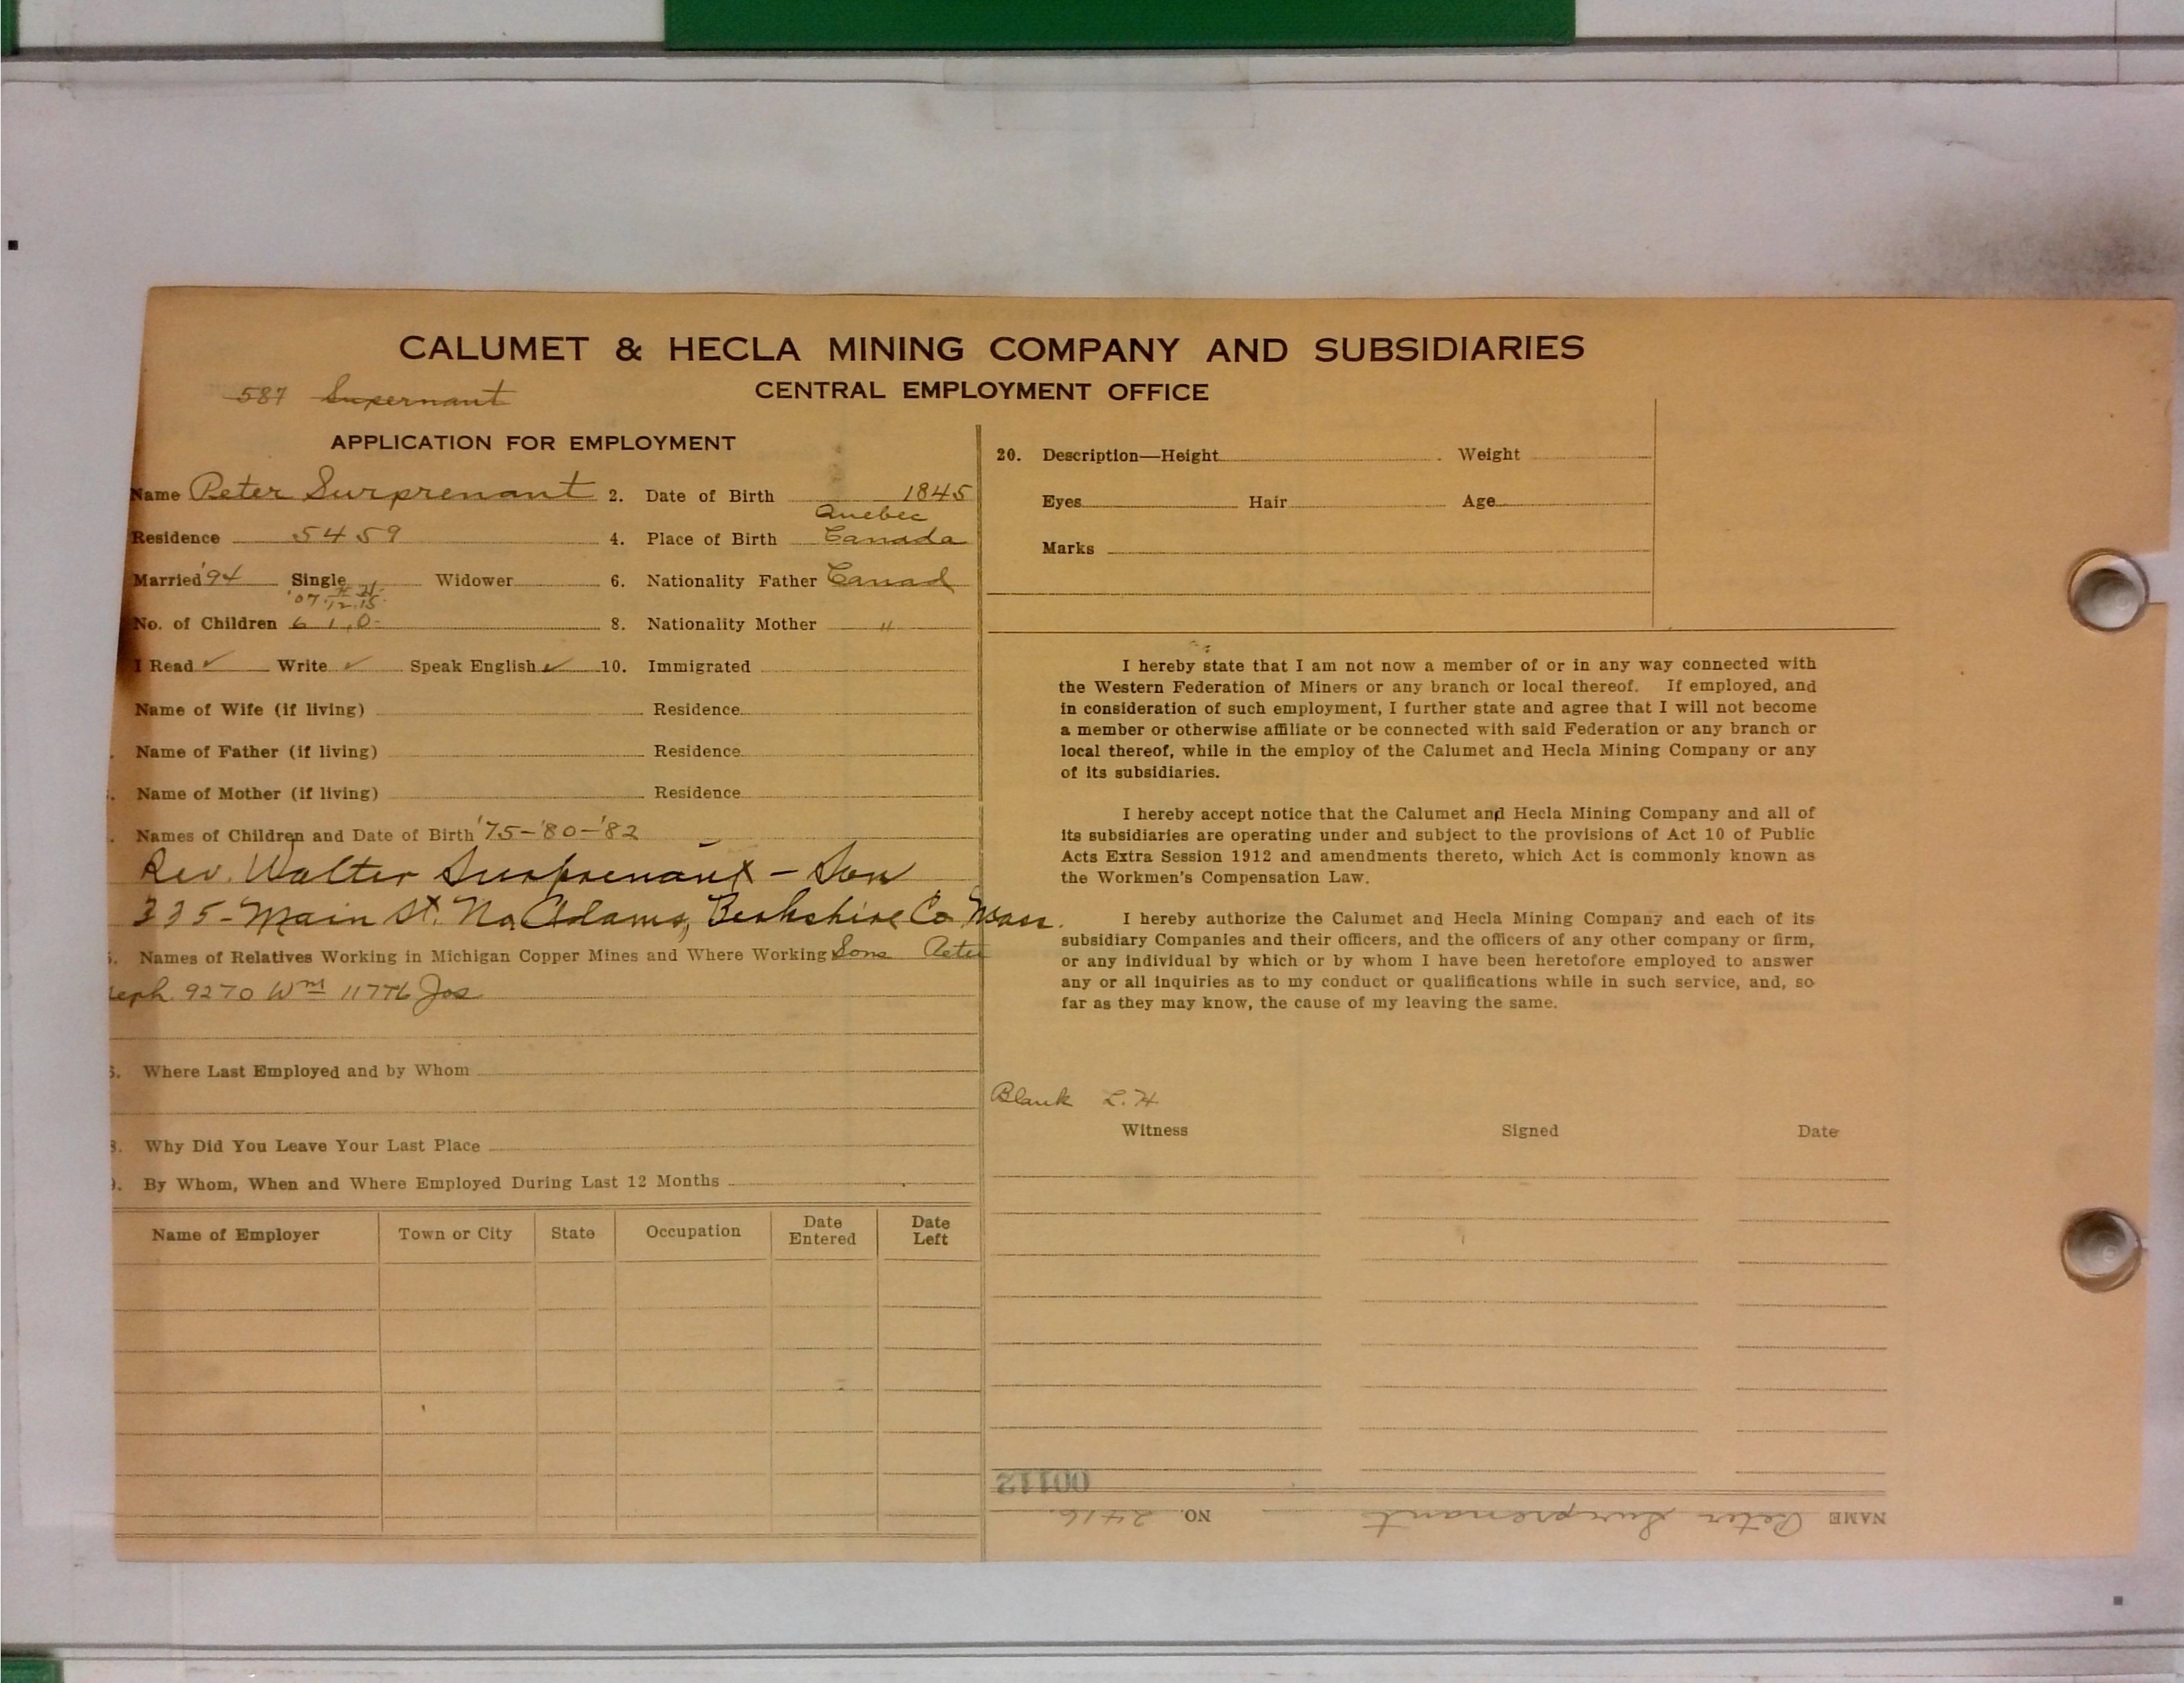 CALUMET & HECLA MINING COMPANY AND SUBSIDIARIES
CENTRAL EMPLOYMENT OFFICE
587 Supernant
APPLICATION FOR EMPLOYMENT
Name Peter Surprenant 2. Date of Birth 1845
Residence 5459 4. Place of Birth Quebec Canada
Married '94 Single Widower 6. Nationality Father Canad
'07 '12 '15
No. of Children 6 1 0 8. Nationality Mother "
I Read ✓ Write ✓ Speak English ✓ 10. Immigrated
Name of Wife (if living) Residence
Name of Father (if living) Residence
Name of Mother (if living) Residence
Names of Children and Date of Birth '75-'80-'82
Rev. Walter Surprenant - Son
335 - Main St. No. Adams, Berkshire Co Mass.
Names of Relatives Working in Michigan Copper Mines and Where Working Sons Peter
seph. 9270 Wm 11776 Jos
Where Last Employed and by Whom
Why Did You Leave Your Last Place
By Whom, When and Where Employed During Last 12 Months
Name of Employer Town or City State Occupation Date Entered Date Left
20. Description—Height Weight
Eyes Hair Age
Marks
I hereby state that I am not now a member of or in any way connected with
the Western Federation of Miners or any branch or local thereof. If employed, and
in consideration of such employment, I further state and agree that I will not become
a member or otherwise affiliate or be connected with said Federation or any branch or
local thereof, while in the employ of the Calumet and Hecla Mining Company or any
of its subsidiaries.
I hereby accept notice that the Calumet and Hecla Mining Company and all of
its subsidiaries are operating under and subject to the provisions of Act 10 of Public
Acts Extra Session 1912 and amendments thereto, which Act is commonly known as
the Workmen's Compensation Law.
I hereby authorize the Calumet and Hecla Mining Company and each of its
subsidiary Companies and their officers, and the officers of any other company or firm,
or any individual by which or by whom I have been heretofore employed to answer
any or all inquiries as to my conduct or qualifications while in such service, and, so
far as they may know, the cause of my leaving the same.
Blank L.H
Witness Signed Date
00112
NAME Peter Surprenant NO. 2416